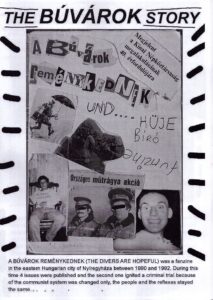 THE BÚVÁROK STORY
A BÚVÁROK
REMÉNYKEDNEK
UND...
HÜJE
BÍRÓ
Országos műtrágya akció
A BÚVÁROK REMÉNYKEDNEK (THE DIVERS ARE HOPEFUL) was a fanzine
in the eastern Hungarian city of Nyíregyháza between 1990 and 1992. During this
time 4 issues were published and the second one ignited a criminal trial because
of the communist system was changed only, the people and the reflexes stayed
the same...